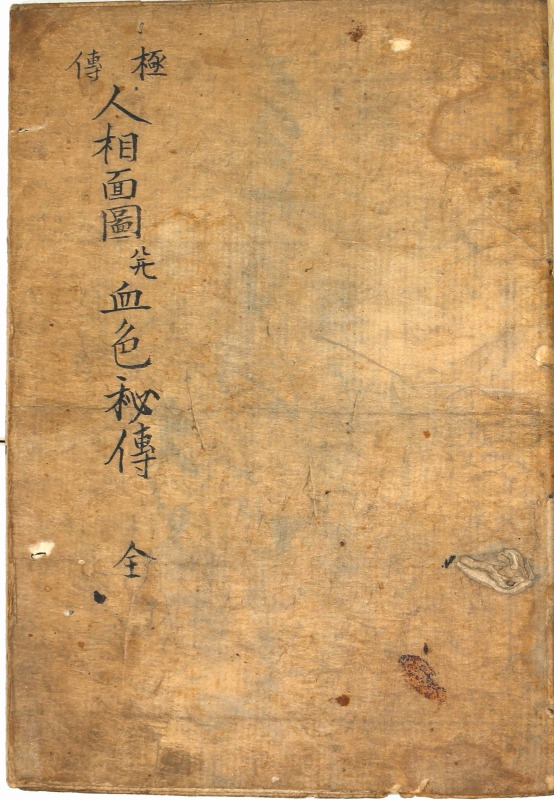 極傳
人相面圖并血色秘傳 全